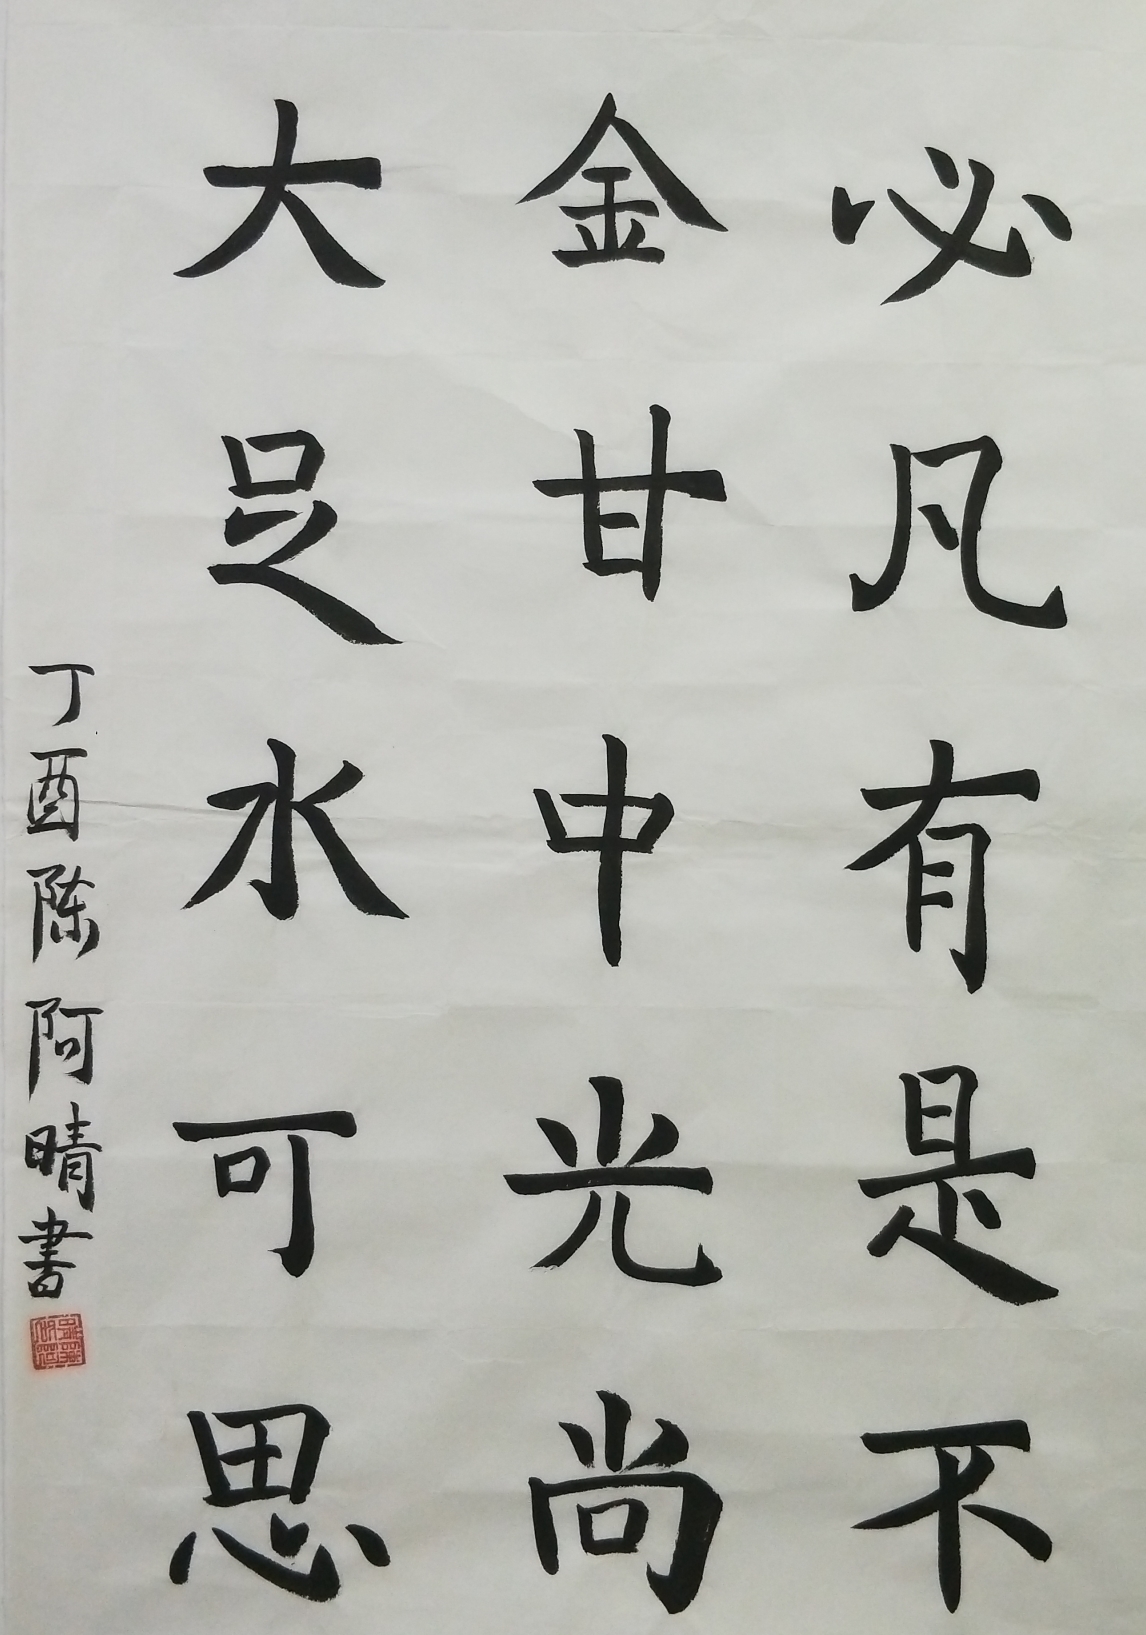 必凡有是不
金甘中光尚
大足水可思
丁酉陈阿晴書